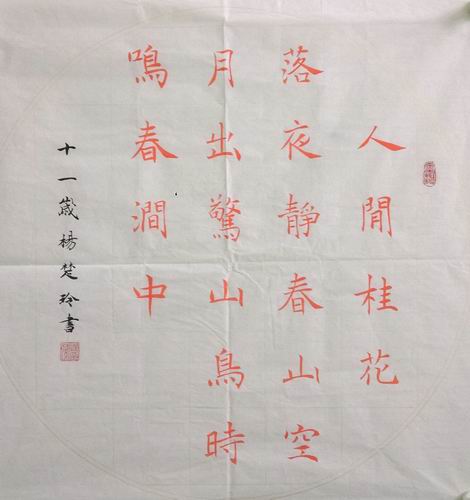 人閒桂花
落夜靜春山空
月出驚山鳥時
鳴春澗中
十一歲楊楚玲書